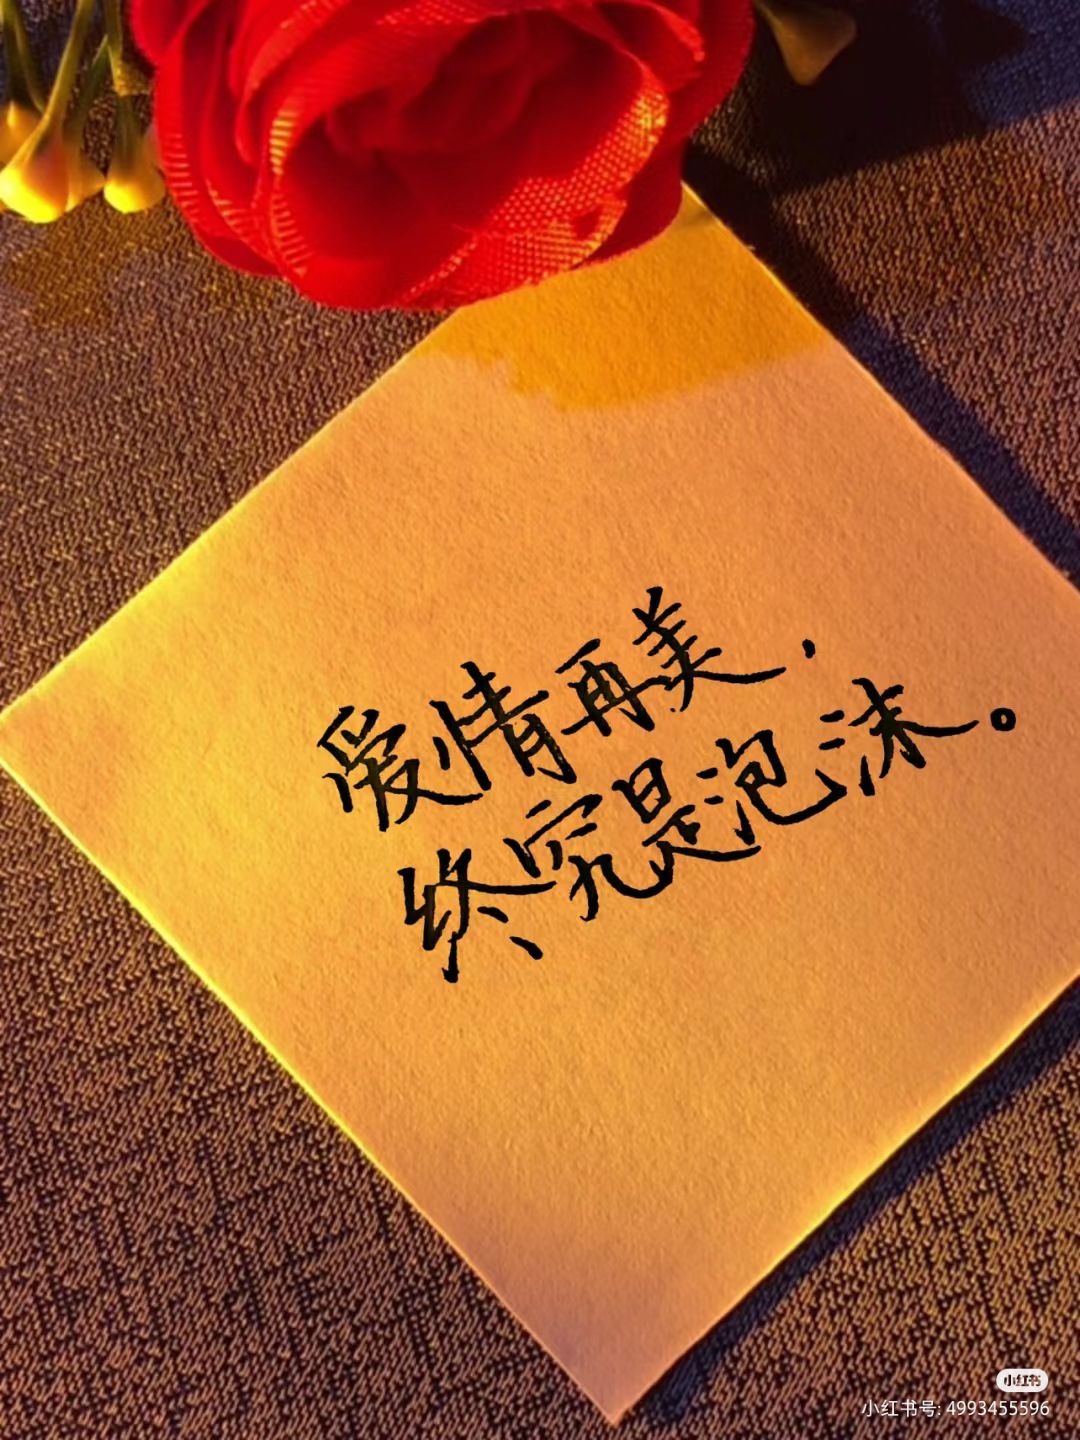 爱情再美，
终究是泡沫。
小红书
小红书号: 4993455596